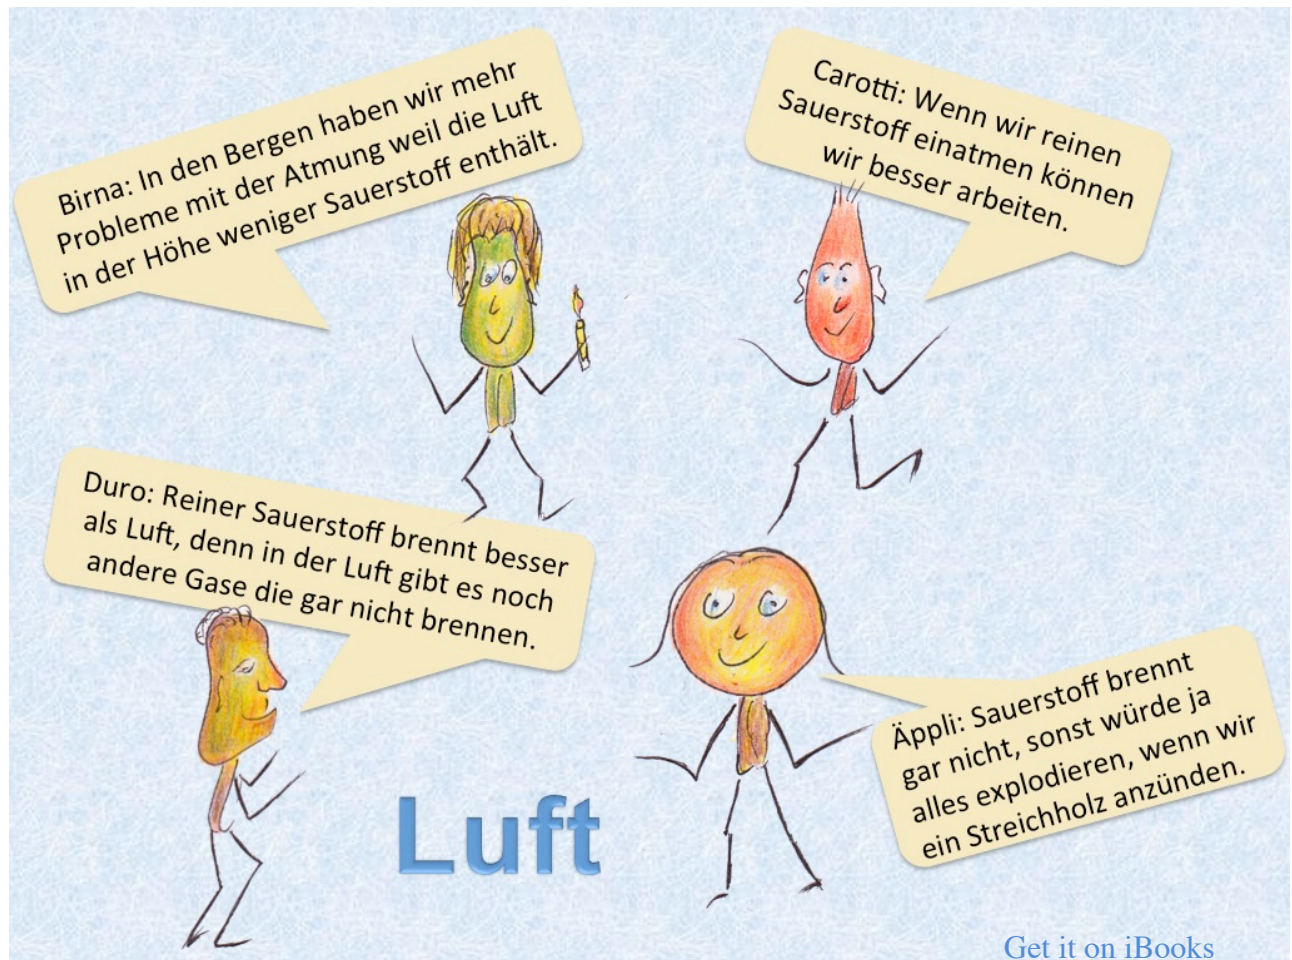 Birna: In den Bergen haben wir mehr
Probleme mit der Atmung weil die Luft
in der Höhe weniger Sauerstoff enthält.
Carotti: Wenn wir reinen
Sauerstoff einatmen können
wir besser arbeiten.
Duro: Reiner Sauerstoff brennt besser
als Luft, denn in der Luft gibt es noch
andere Gase die gar nicht brennen.
Äppli: Sauerstoff brennt
gar nicht, sonst würde ja
alles explodieren, wenn wir
ein Streichholz anzünden.
Luft
Get it on iBooks